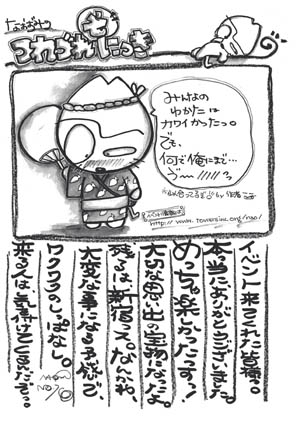 つれづれにっき
みんなの
ゆかたは
カワイかったっ。
でも、
何で俺にまで…
う〜/////っ
http://www.towersinc.org/nao/
イベント来てくれた皆様っ。
本当にありがとうございました。
めっちゃ楽しかったですっ!
大切な思い出の宝物になったよ。
残るは、新宿っス。なんかね、
大変な事になる予感で、
ワクワクのしっぱなし。
来る人は、気を付けてくるんだぞっ。